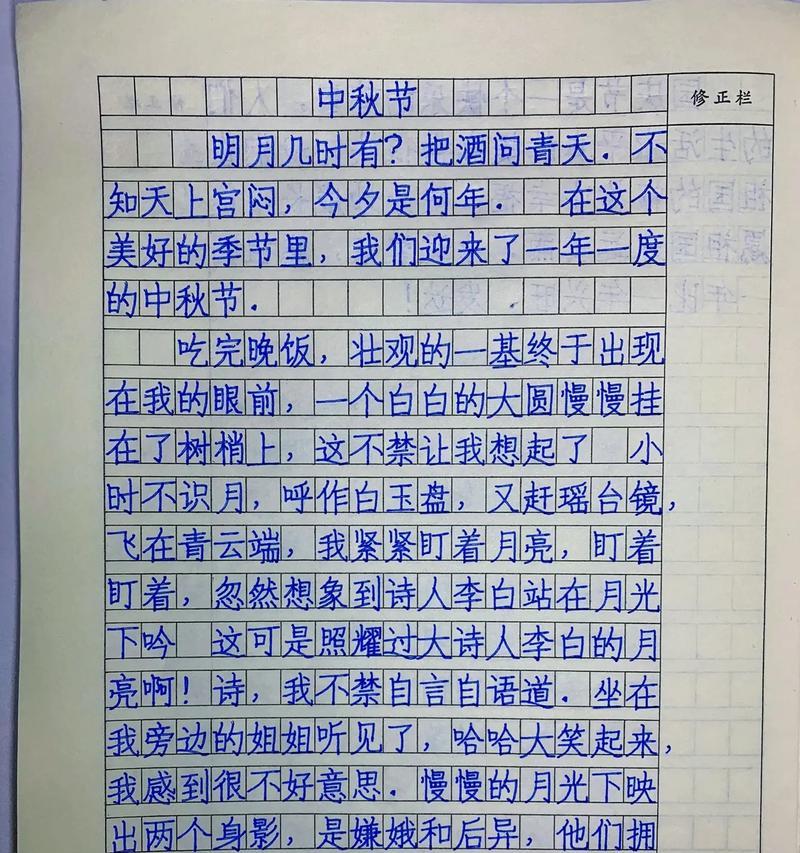 中秋节
修正栏
明月几时有？把酒问青天．不
知天上宫闷，今夕是何年． 在这个
美好的季节里，我们迎来了一年一度
的中秋节．
吃完晚饭，壮观的一基终于出现
在我的眼前，一个白白的大圆慢慢挂
在了树梢上，这不禁让我想起了 小
时不识月，呼作白玉盘，又赶瑶台镜，
飞在青云端，我紧紧盯着月亮，盯着
盯着，忽然想象到诗人李白站在月光
下吟 这可是照耀过大诗人李白的月
亮啊！诗，我不禁自言自语道．坐在
我旁边的姐姐听见了，哈哈大笑起来，
我感到很不好意思．慢慢的月光下映
出两个身影，是嫌娥和后异，他们拥